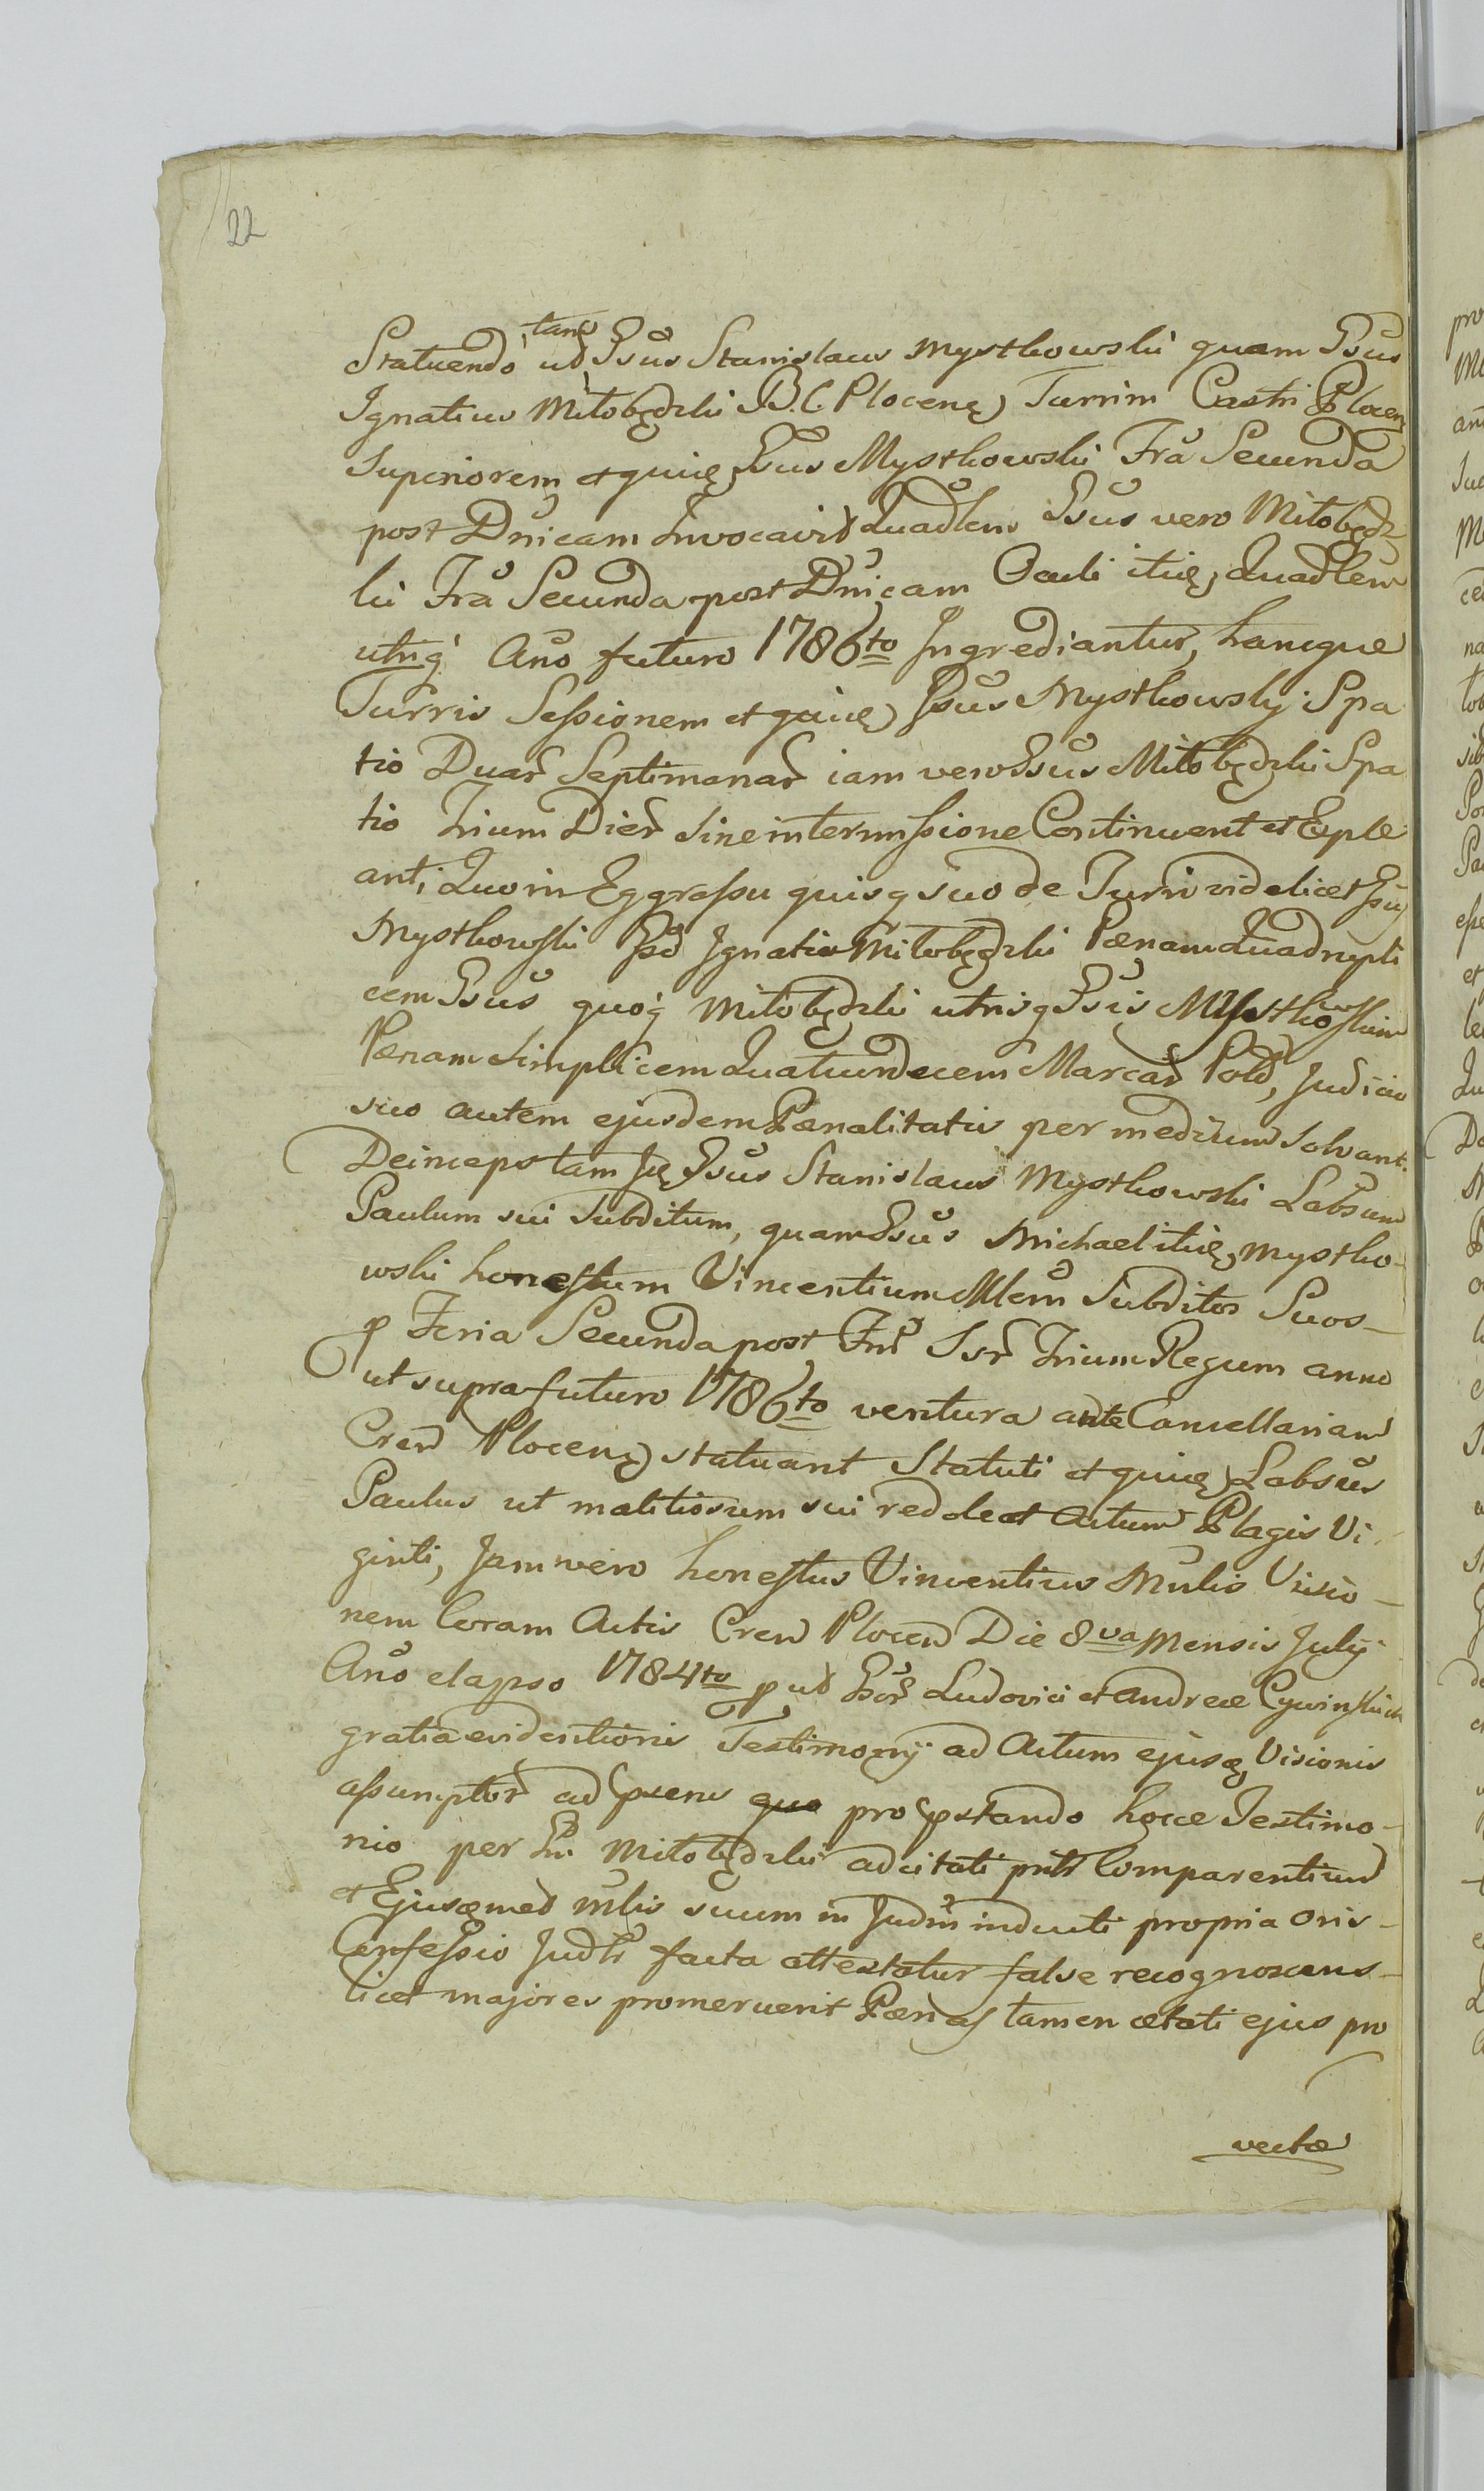 22
Statuendo tanq ut Gsus Stanislaus Mystkowski quam Gsus
Ignatius Miłobędzki B. C. Plocenẹ Turrim Castri Plocen
Superiorem et quiẹ Gsus Mystkowski Fra Secunda
post Dnicam Invocavit Quadlem Gsus vero Miłobędz
ki Fra Secunda post Dnicam Oculi itiẹ Quadlem
utriq Ano futuro 1786to Ingrediantur, hancque
Turris Sessionem et quiẹ Gsus Mystkowsky Spa
tio Duar Septimanar iam vero Gsus Miłobędzki Spa
tio Trium Dier Sine intermissione Continuent et Exple
ant, Quo in Eggressu quisq suo de Turri videlicet Gsus
Mystkowski Gso Ignatio Miłobędzki Pænam Quadrupli
cem Gsus quoq Miłobędzki utrisq Gsis Mystkowskim
Pænam Simplicem Quatuordecem Marcar Pold, Judicio
suo autem ejusdem Pænalitatis per medium Solvant.
Deinceps tam Gsus Stanislaus Mystkowski Labsum
Paulum sui Subditum, quam Gsus Michael itiẹ Mystko-
wski honestum Vincentium Mlem Subditos Suos -
p Feria Secunda post Ssr Trium Regum anno
ut supra futuro 1786to ventura ante Cancellariam
Cren Plocenẹ statuant Statuti et quiẹ Labsus
Paulus ut malitiosum sui reddeat Actum Plagis Vi
ginti, Jam vero honestus Vincentius Mulis Visio -
nem Coram Actis Cren Plocen Die 8va Mensis July
Ano elapso 1784to p ut Gsor Ludovici et Andreæ Cywinskich
gratia evidentioris Testimonÿ ad Actum ejusq Visionis
assumptor ad psens quo pro pstando hocce Testimo-
nio per Miłobędzki adcitati pntr Comparentium
et Ejusmed mlis suum in Judm inducti propria oris -
Confessio Judlr facta attestatur false recognoscens -
licet majores promeruerit Pænas tamen ætati ejus pro
vectæ